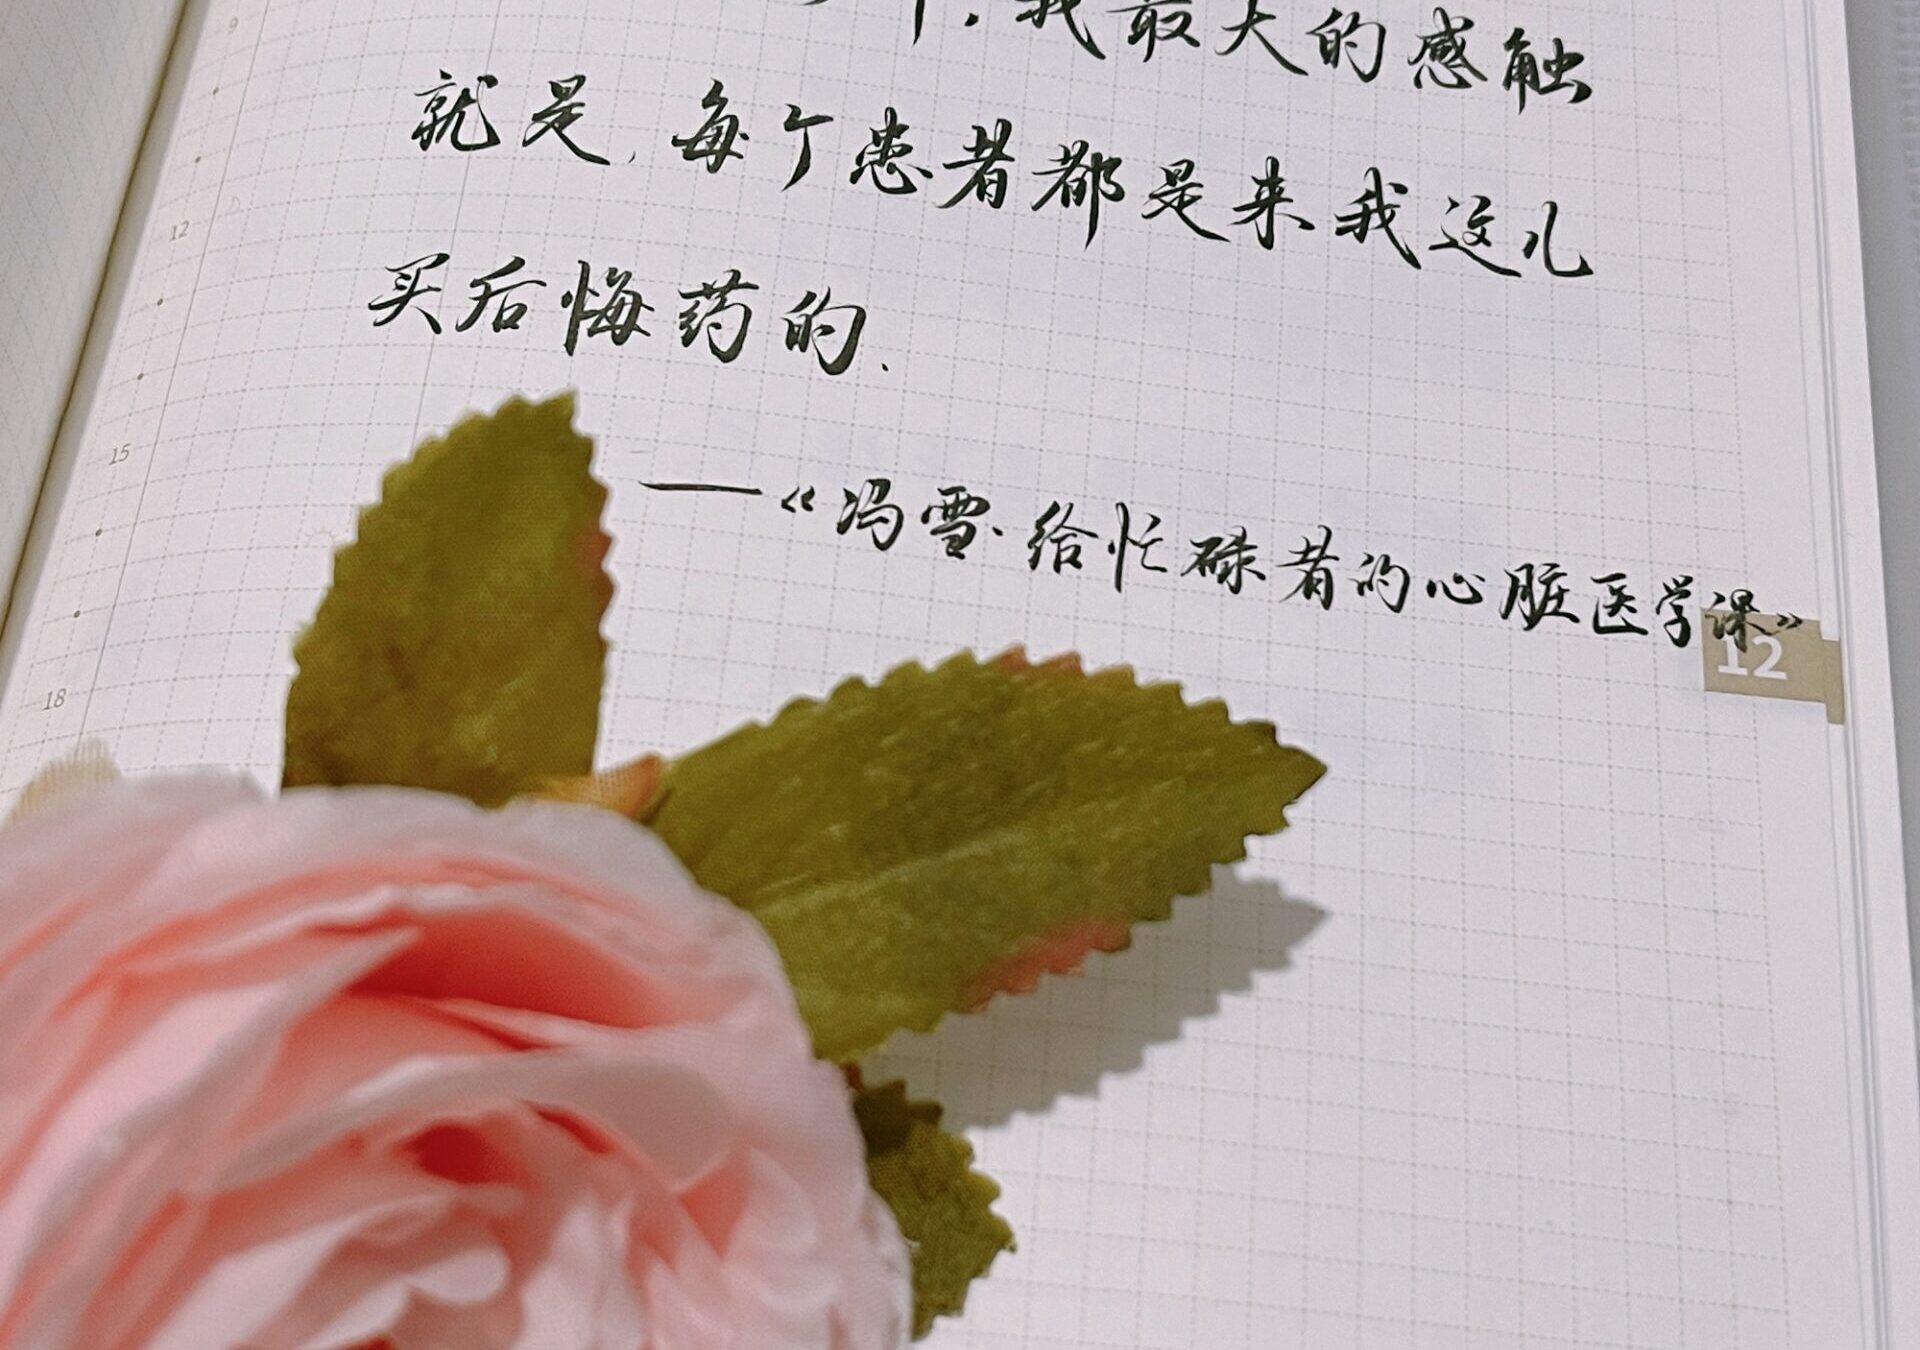 我最大的感触
就是,每个患者都是来我这儿
买后悔药的.
——《冯雪·给忙碌者的心脏医学课》
9
12
15
18
12